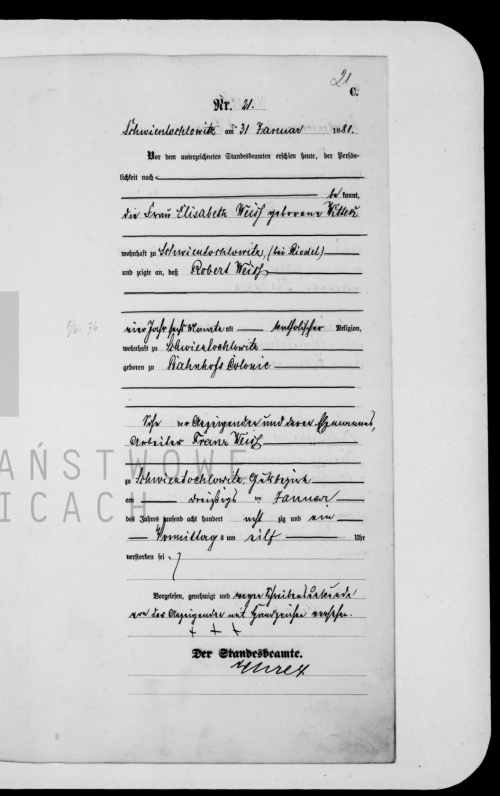 21
C.
Nr. 21.
Schwientochlowitz am 31 Januar 1881.
Vor dem unterzeichneten Standesbeamten erschien heute, der Persön-
lichkeit nach
be kannt,
die Frau Elisabeth Weiß geborene
wohnhaft zu Schwientochlowitz, (bei Riedel)
und zeigte an, daß Robert Weiß,
5/6. 76
vier Jahr sechs Monate alt katholischer Religion,
wohnhaft zu Schwientochlowitz
geboren zu Bahnhofs Colonie
Sohn der Anzeigenden und deren Ehemannes,
Arbeiter Franz Weiß
zu Schwientochlowitz, Gutsbezirk
am dreißigs ten Januar
des Jahres tausend acht hundert acht zig und ein
Vormittags um eilf Uhr
verstorben sei.
Vorgelesen, genehmigt und wegen Schreibensunkunde
von der Anzeigenden mit Handzeichen versehen.
+ + +
Der Standesbeamte.
AŃSTWOWE
ICACH